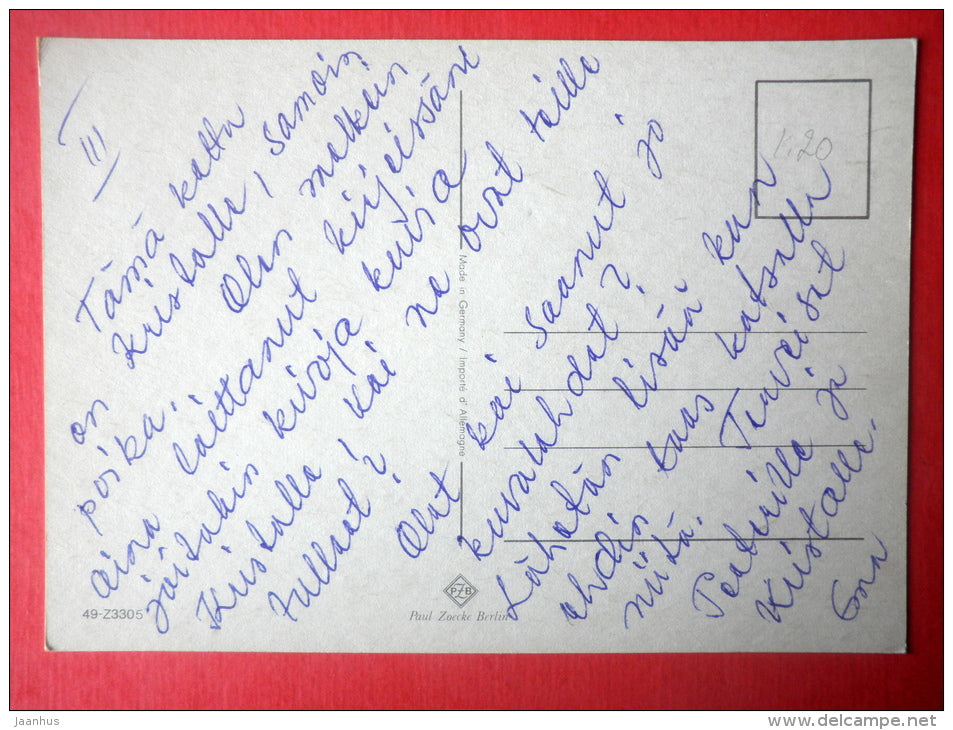 III
Tämä kattu
Kristalle, samoin
on Olen melkein
poika.
aina laittanut kirjeissäni
joitakin kivoja kuvia
Kristalle! Kai ne ovat teille
tulleet?
Olet kai saanut jo
kuvalehdat?
Lähetän lisää kun
ehdin taas katsella
niitä.
Terveiset
Peeterille ja
Kristalle.
Made in Germany / Importé d'Allemagne
1.20
49-Z3305
PZB
Paul Zoecke Berlin
Jaanhus
www.delcampe.net